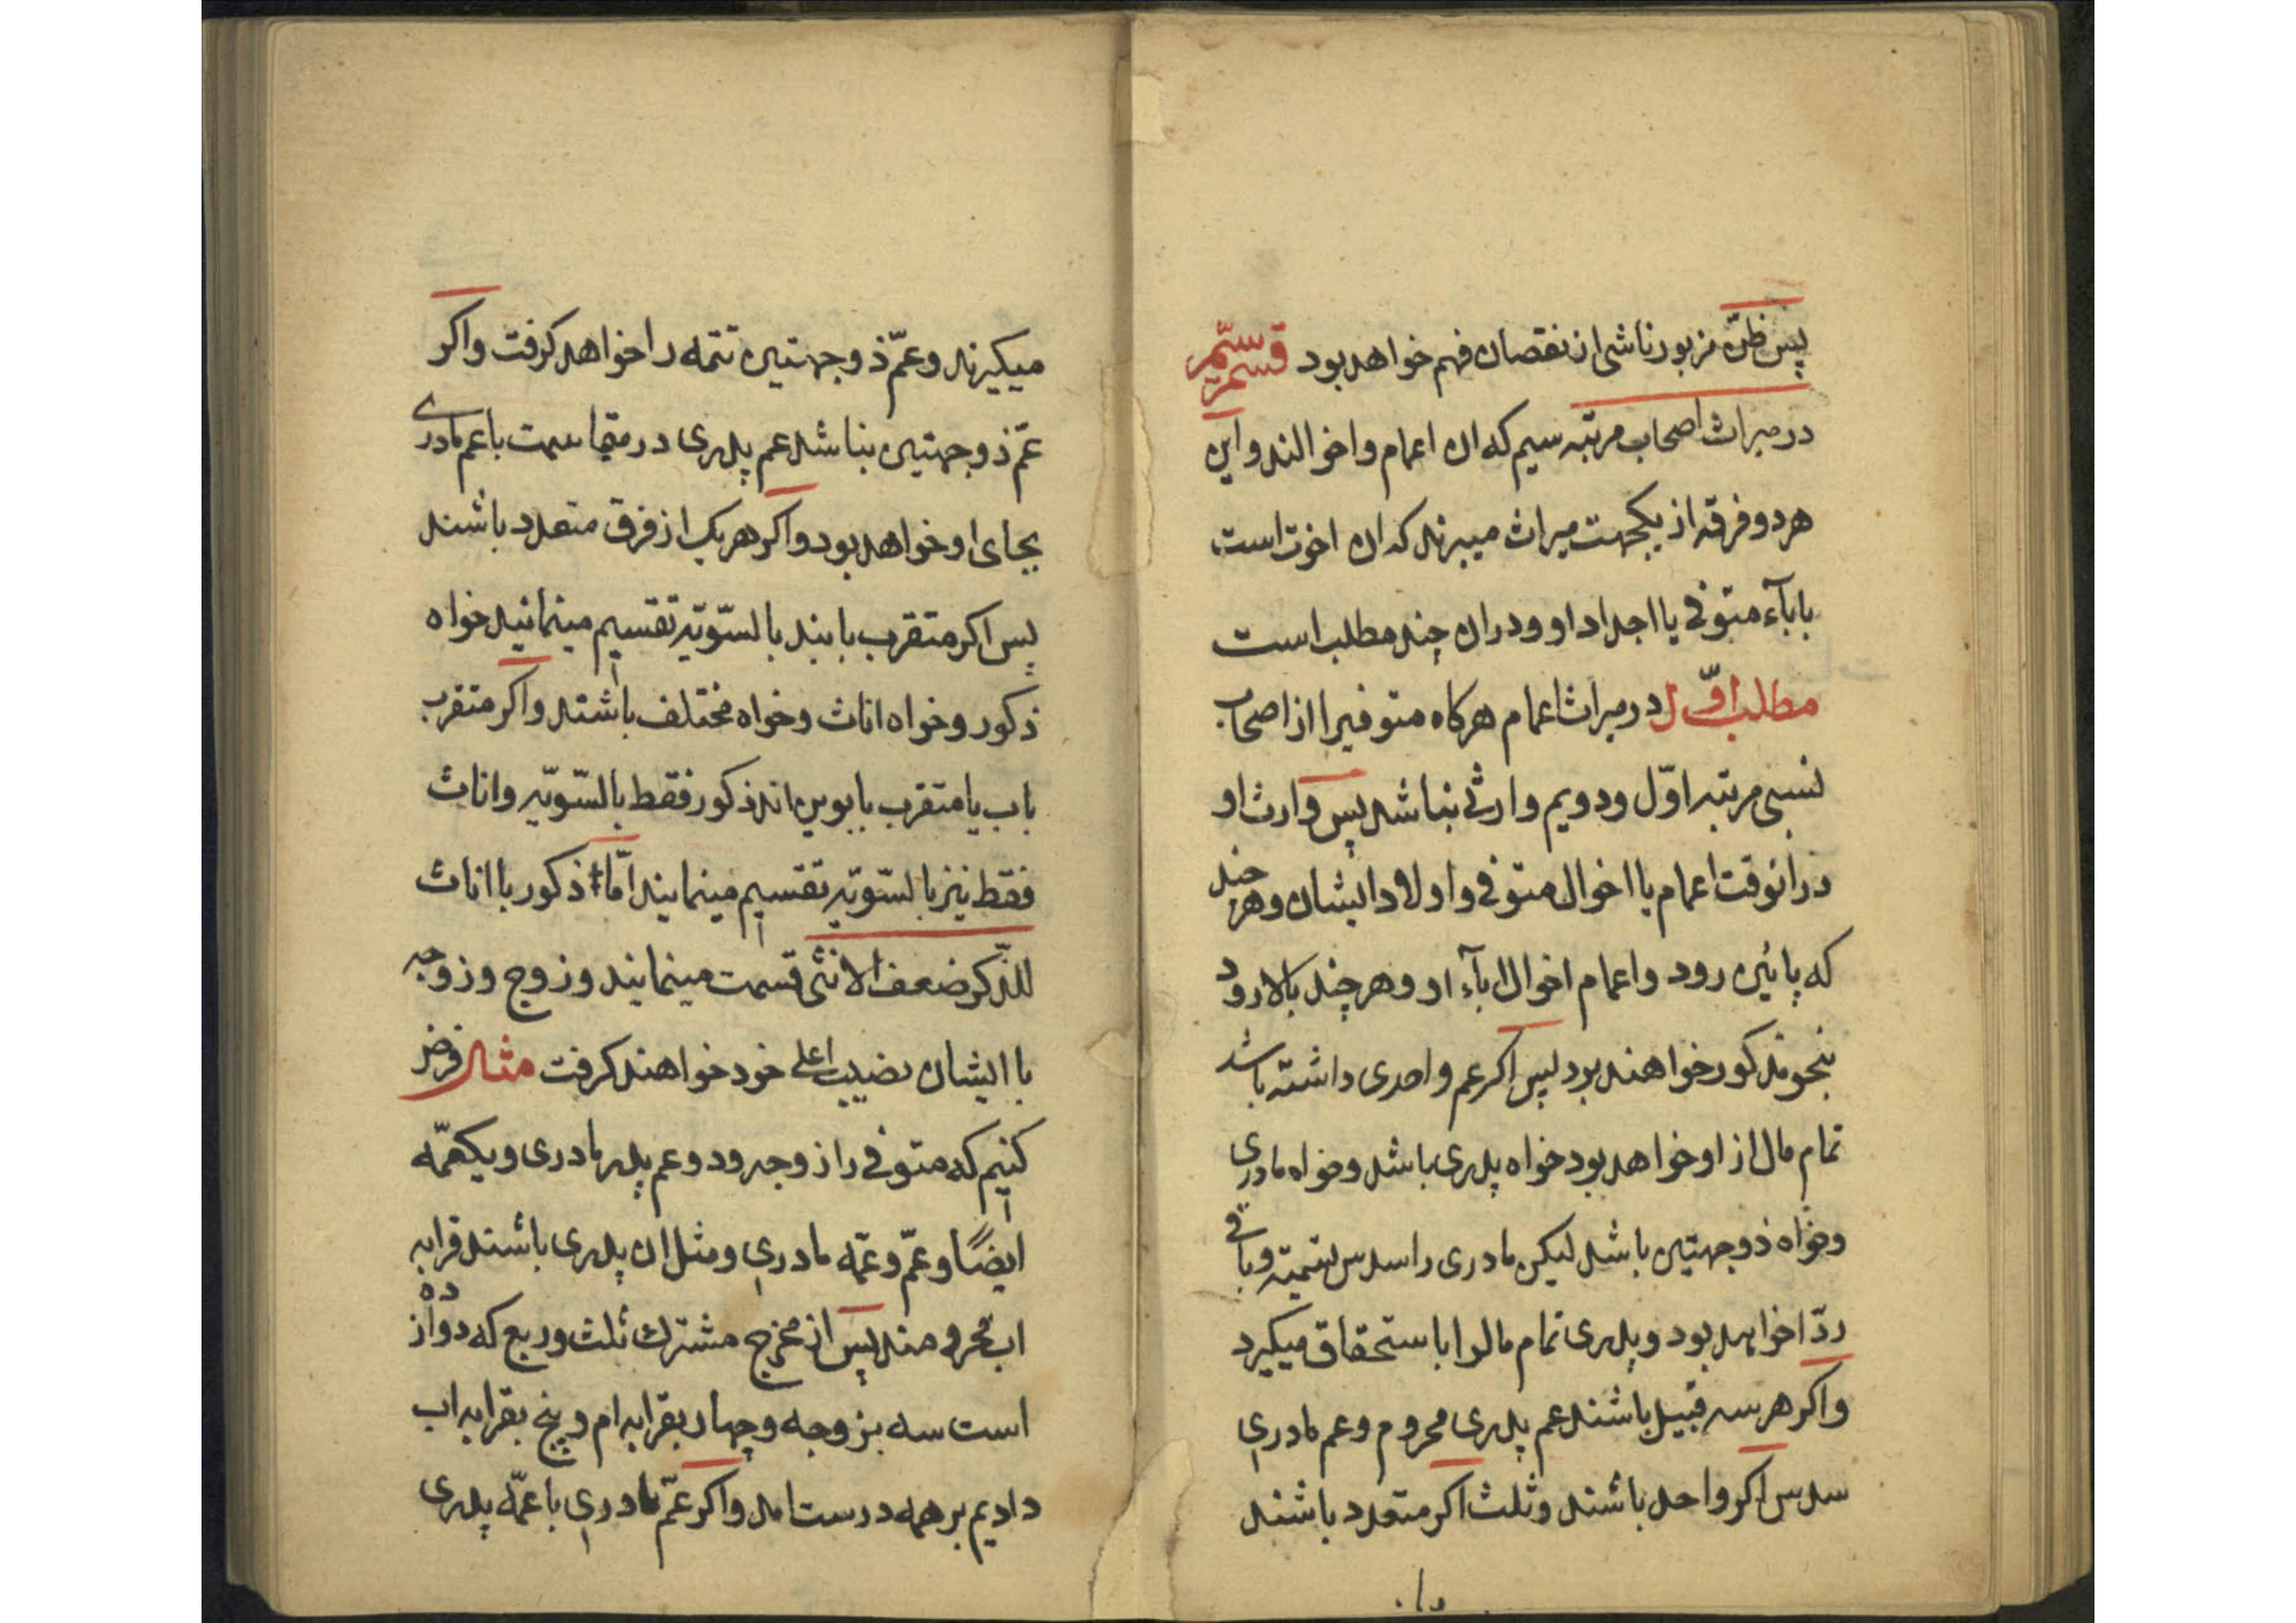 پس ظنّ مزبور ناشی از نقصان فهم خواهد بود قسم سیّم
در میراث اصحاب مرتبه سیم که ان اعمام و اخوالند و این
هر دو فرقه از یکجهت میراث میبرند که ان اخوت است
باباء متوفی یا اجداد او و در ان چند مطلب است
مطلب اوّل در میراث اعمام هرکاه متوفیرا از اصحاب
نسبی مرتبه اوّل و دویم وارثی نباشد پس وارث او
در انوقت اعمام یا اخوال متوفی و اولاد ایشان و هر چند
که پائین رود و اعمام اخوال اباء او و هر چند بالا رود
بنحو مذکور خواهند برد پس اکر عم واحدی داشته باشد
تمام مال از او خواهد بود خواه پدری باشد و خواه مادری
و خواه ذو جهتین باشد لیکن مادری را سدس تسمیته و باقی
ردّا خواهد بود و پدری تمام مالرا باستحقاق میکیرد
و اکر هر سه قبیل باشند عم پدری محروم و عم مادری
سدس اکر واحد باشند و ثلث اکر متعدد باشند
میکیرند و عمّ ذو جهتین تتمه را خواهد کرفت و اکر
عمّ ذو جهتین نباشد عم پدری در مقاسمت با عم مادری
بجای او خواهد بود و اکر هر یک از فرق متعدد باشند
پس اکر متقرب بابند بالسّویّه تقسیم مینمایند خواه
ذکور و خواه اناث و خواه مختلف باشند و اکر متقرب
باب یا متقرب بابوین اند ذکور فقط بالسّویّه و اناث
فقط نیز بالسّویّه تقسیم مینمایند امّا ذکور با اناث
للذّکر ضعف الانثی قسمت مینمایند و زوج و زوجه
با ایشان نصیب اعلی خود خواهند کرفت مثال فرض
کنیم که متوفی را زوجه و دو عم پدر مادری و یکعمّه
ایضًا و عمّ و عمّه مادری و مثل ان پدری باشند قرابه
اب محرومند پس از مخرج مشترك ثلث و ربع که دوازده
است سه بزوجه و چهار بقرابه ام و پنج بقرابه اب
دادیم بر همه درست امد و اکر عمّ مادری با عمّه پدری